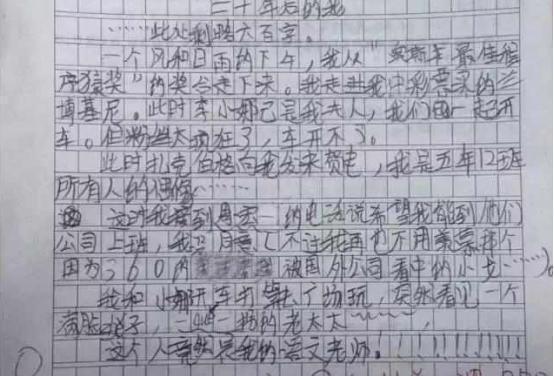 三十年后的我
……此处刺略六百字。
一个风和日雨的下午，我从"奥斯卡最佳程
序猿奖"的奖台走下来。我走进我中彩票买的兰
博基尼。此时李小娜已是我夫人，我们一起开
车。但粉丝太疯狂了，车开不了。
此时扎克伯格向我发来贺电，我是五年12班
所有人的偶像……
这时我接到 的电话说希望我能到他们
公司上班，我 同意，（不过我再也不用羡慕那个
因为360的 被国外公司看中的小
我和小娜开车 玩，突然看见一个
满脸 子， 的老太太
这个人竟然是我的语文老师！！！！！！！！！！